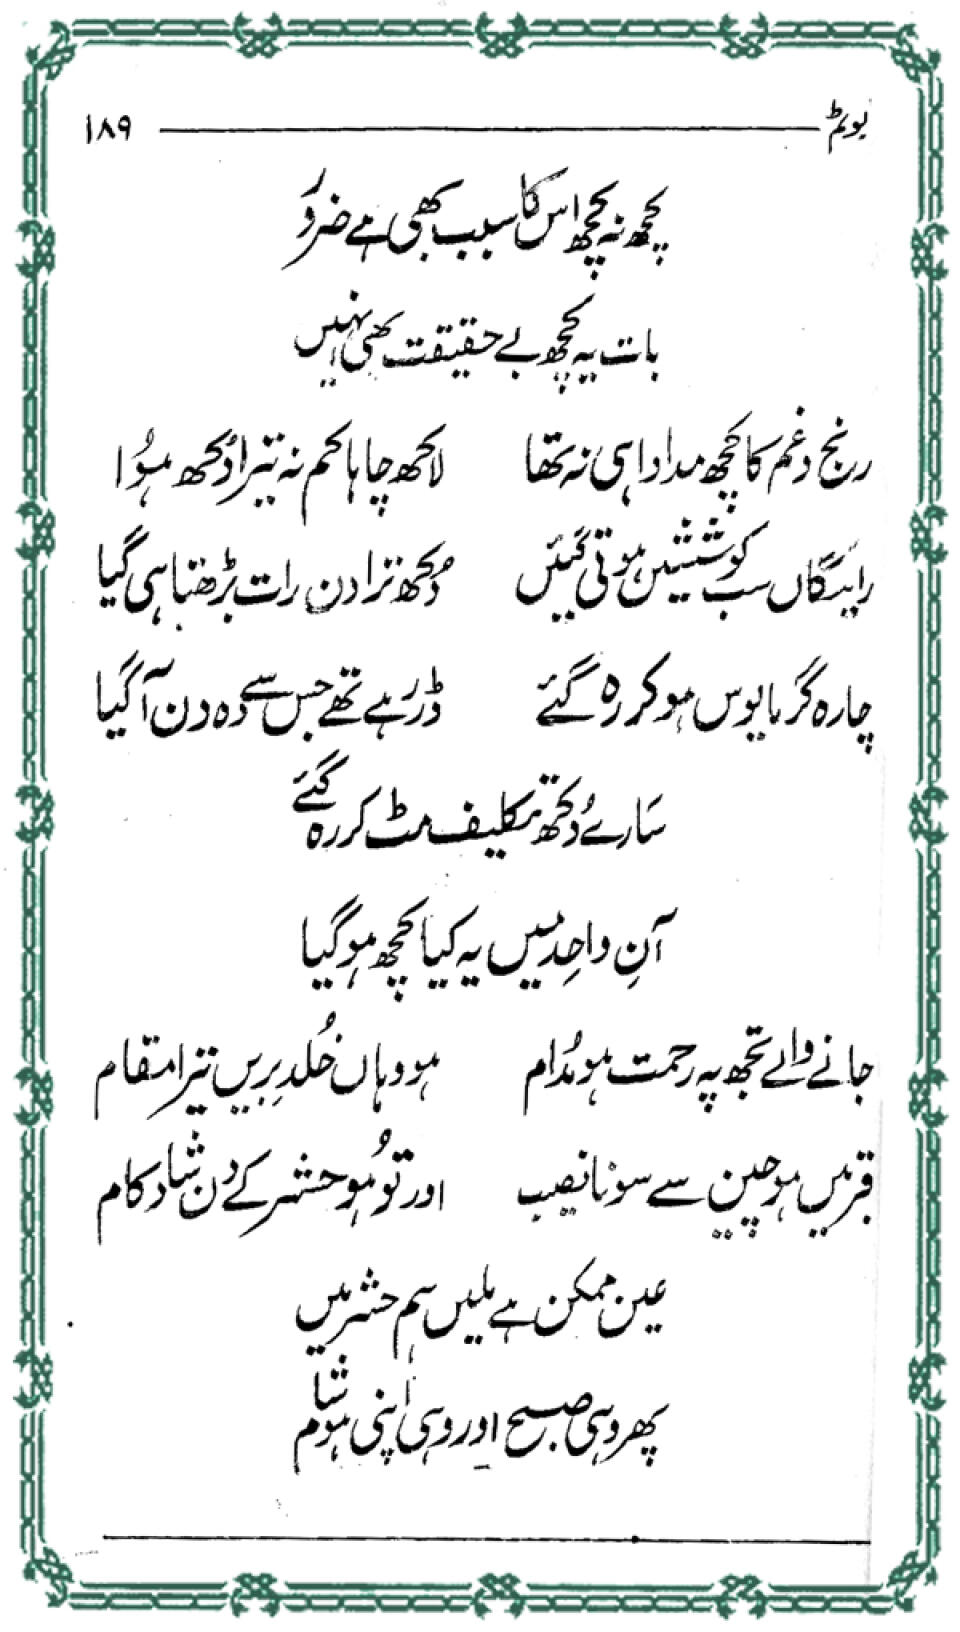 بوئم ۱۸۹
کچھ نہ کچھ اس کا سبب بھی ہے ضرور
بات یہ کچھ بے حقیقت بھی نہیں
رنج و غم کا کچھ مداوا ہی نہ تھا لاکھ چاہا کم نہ تیرا دُکھ ہوُا
رائیگاں سب کوششیں ہوتی گئیں دُکھ ترا دن رات بڑھتا ہی گیا
چارہ گر مایوس ہو کر رہ گئے ڈر رہے تھے جس سے وہ دن آ گیا
سَارے دُکھ تکلیف مٹ کر رہ گئے
آنِ واحِد میں یہ کیا کچھ ہو گیا
جانے والے تجھ پہ رحمت ہو مُدام ہو وہاں خُلدِ بریں تیرا مقام
قبر میں ہو چین سے سونا نصیب اور تُو ہو حشر کے دن شاد کام
عین ممکن ہے ملیں ہم حشر میں
پھر وہی صبح اور وہی اپنی ہو شام